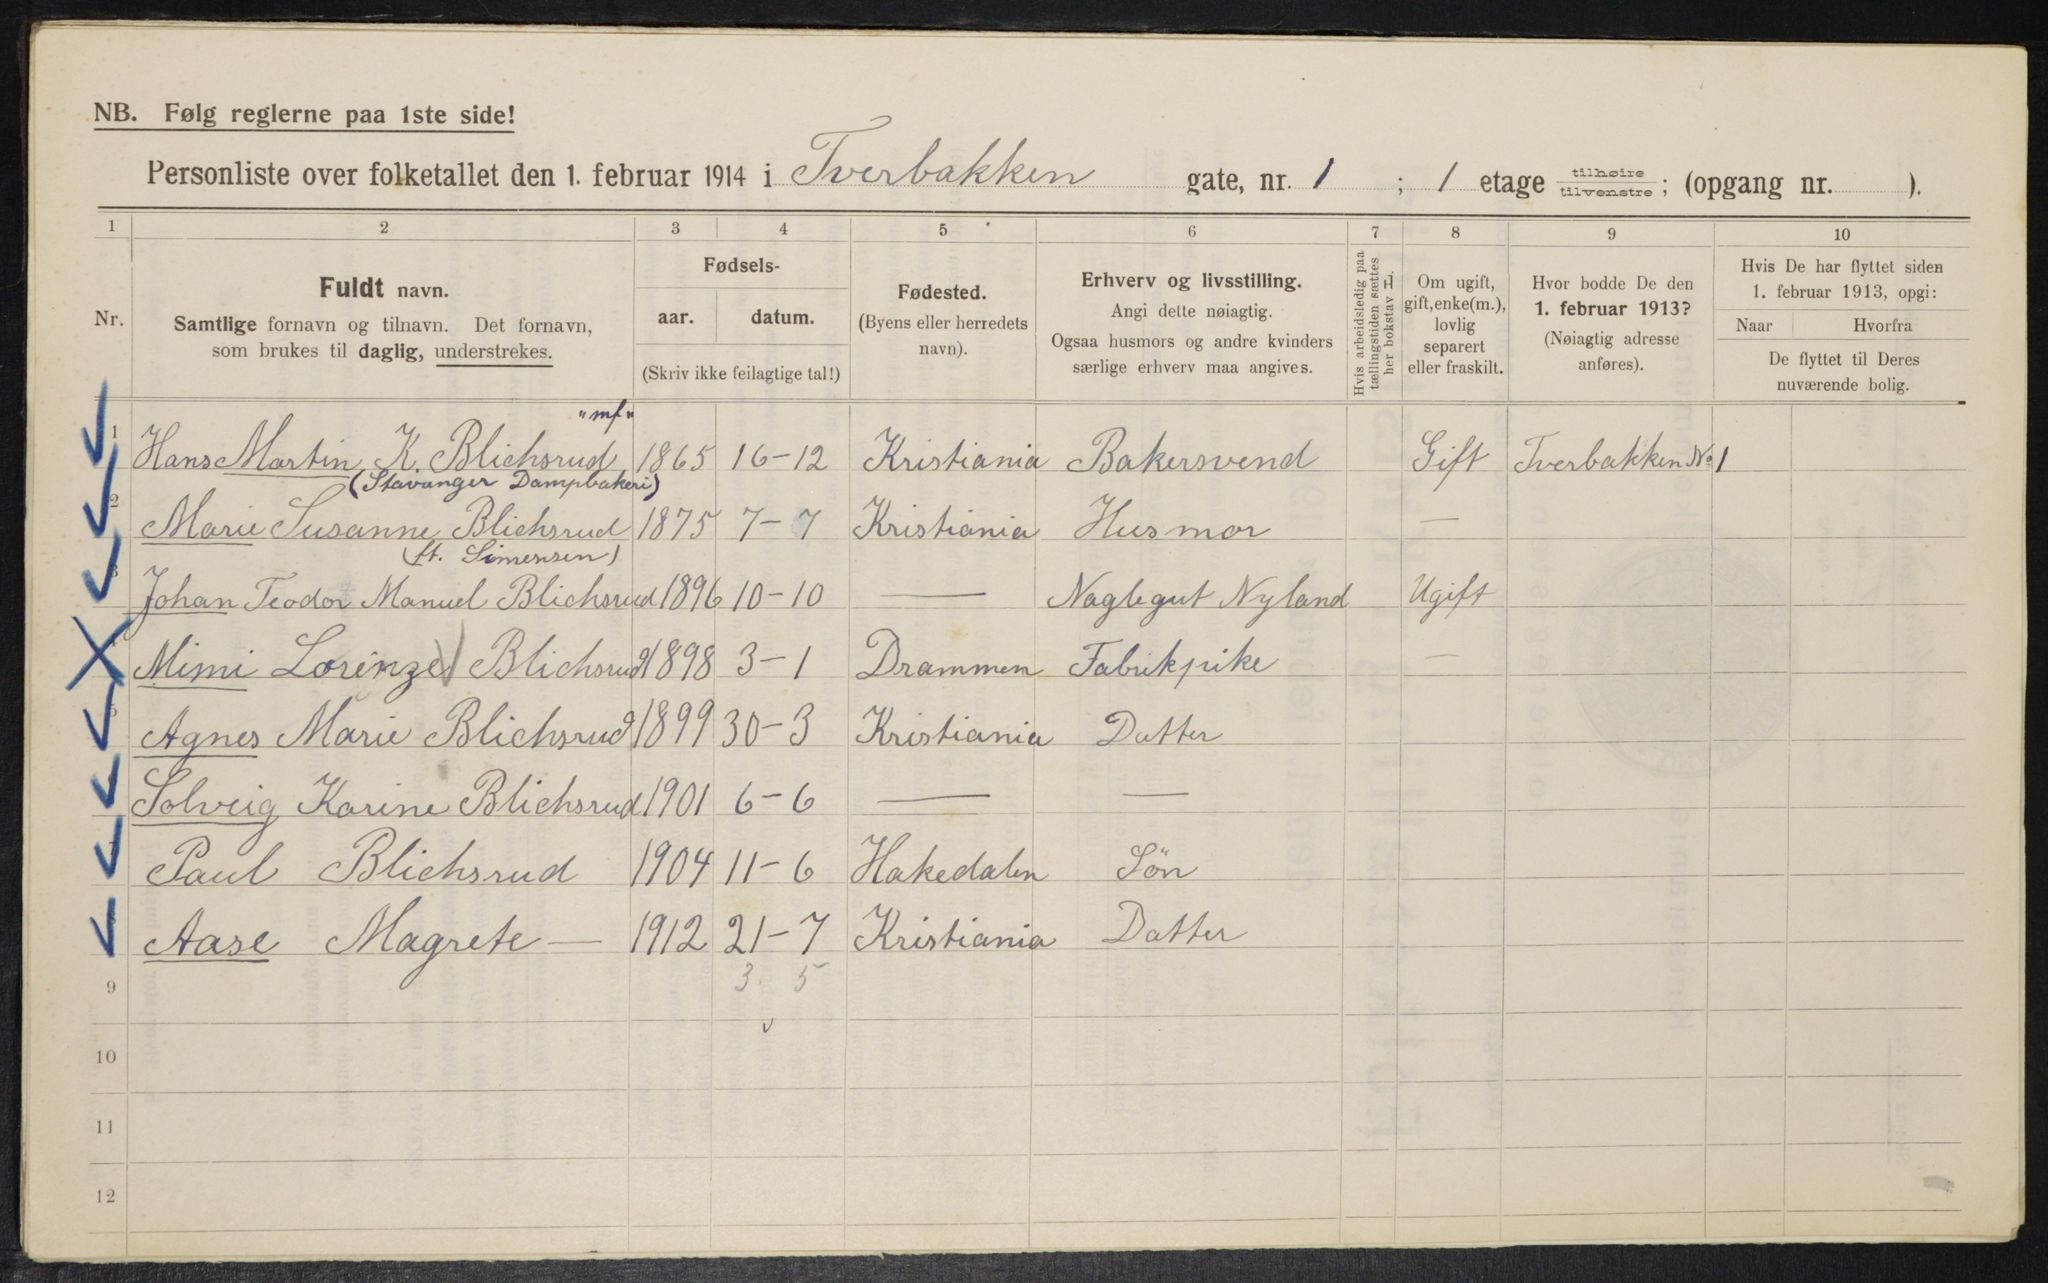 NB. Følg reglerne paa 1ste side!
Personliste over folketallet den 1. februar 1914 i Tverbakken gate, nr. 1 ; 1 etage tilhøire tilvenstre; (opgang nr. ).
1 2 3 4 5 6 7 8 9 10
Nr.
Fuldt navn.
Samtlige fornavn og tilnavn. Det fornavn,
som brukes til daglig, understrekes.
Fødsels-
aar. datum.
(Skriv ikke feilagtige tal!)
Fødested.
(Byens eller herredets
navn).
Erhverv og livsstilling.
Angi dette nøiagtig.
Ogsaa husmors og andre kvinders
særlige erhverv maa angives.
Hvis arbeidsledig paa
tællingstiden sættes
her bokstav L.
Om ugift,
gift, enke(m.),
lovlig
separert
eller fraskilt.
Hvor bodde De den
1. februar 1913?
(Nøiagtig adresse
anføres).
Hvis De har flyttet siden
1. februar 1913, opgi:
Naar Hvorfra
De flyttet til Deres
nuværende bolig.
"mf"
1 Hans Martin K. Blichsrud 1865 16-12 Kristiania Bakersvend Gift Tverbakken No 1
(Stavanger Dampbakeri)
2 Marie Susanne Blichsrud 1875 7-7 Kristiania Husmor —
(ft. Simensen)
3 Johan Teodor Manuel Blichsrud 1896 10-10 — Naglegut Nyland Ugift
Mimi Lorinze Blichsrud 1898 3-1 Drammen Fabrikpike —
5 Agnes Marie Blichsrud 1899 30-3 Kristiania Datter
Solveig Karine Blichsrud 1901 6-6 — —
Paul Blichsrud 1904 11-6 Hakedalen Sön
Aase Magrete — 1912 21-7 Kristiania Datter
9 3. 5
10
11
12